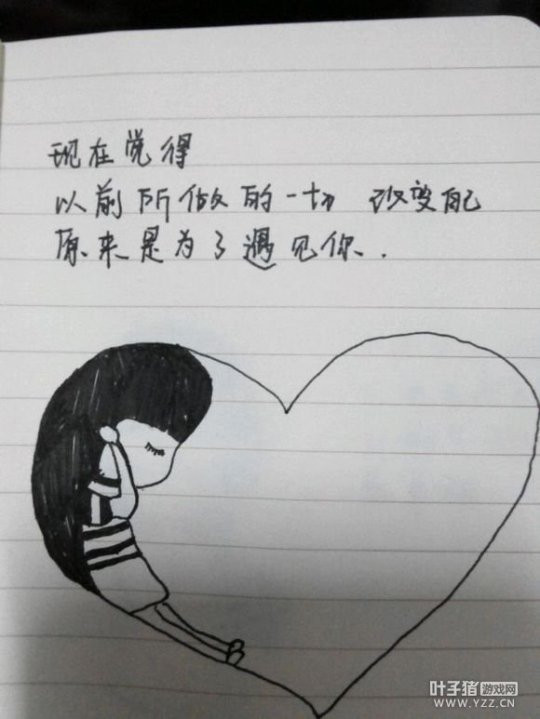 现在觉得
以前所做的一切 改变自己
原来是为了遇见你.
叶子猪游戏网
www.YZZ.CN